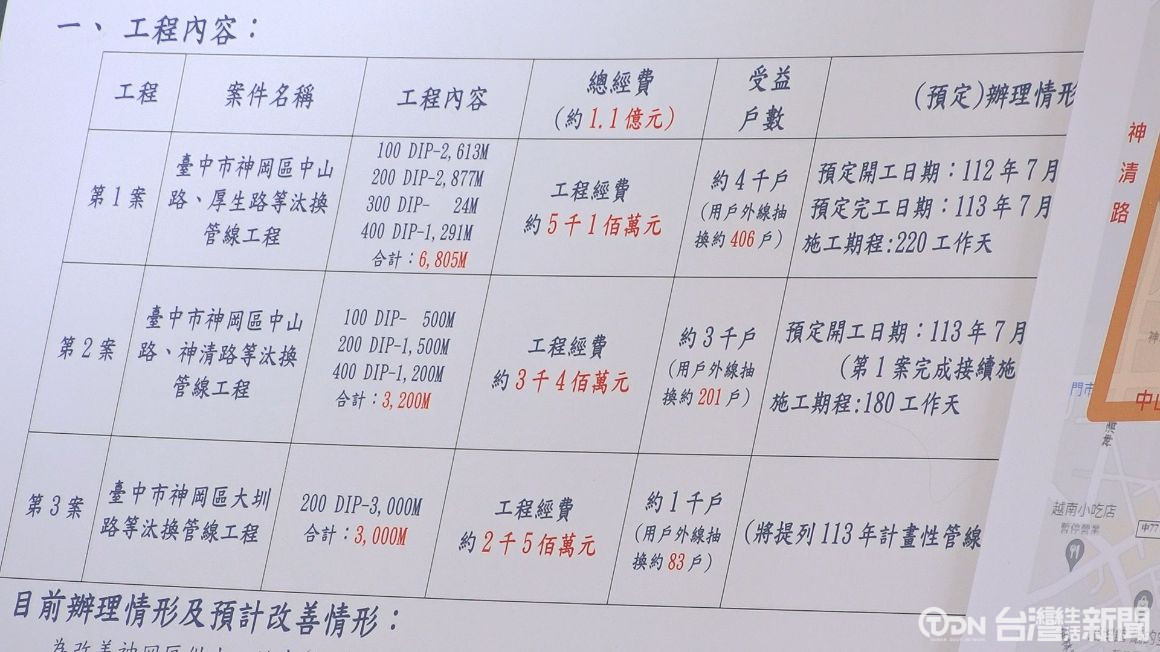 一、工程內容：
工程
案件名稱
工程內容
總經費
(約1.1億元)
受益
戶數
(預定)辦理情形
第1案
臺中市神岡區中山
路、厚生路等汰換
管線工程
100 DIP-2,613M
200 DIP-2,877M
300 DIP- 24M
400 DIP-1,291M
合計：6,805M
工程經費
約5千1佰萬元
約4千戶
(用戶外線抽
換約406戶)
預定開工日期：112年7月
預定完工日期：113年7月
施工期程:220工作天
第2案
臺中市神岡區中山
路、神清路等汰換
管線工程
100 DIP- 500M
200 DIP-1,500M
400 DIP-1,200M
合計：3,200M
工程經費
約3千4佰萬元
約3千戶
(用戶外線抽
換約201戶)
預定開工日期：113年7月
(第1案完成接續施
施工期程:180工作天
第3案
臺中市神岡區大圳
路等汰換管線工程
200 DIP-3,000M
合計：3,000M
工程經費
約2千5佰萬元
約1千戶
(用戶外線抽
換約83戶)
(將提列113年計畫性管線
目前辦理情形及預計改善情形：
神清路
中山
門市
越南小吃店
暫停營業
中77
TDN 台灣生活新聞